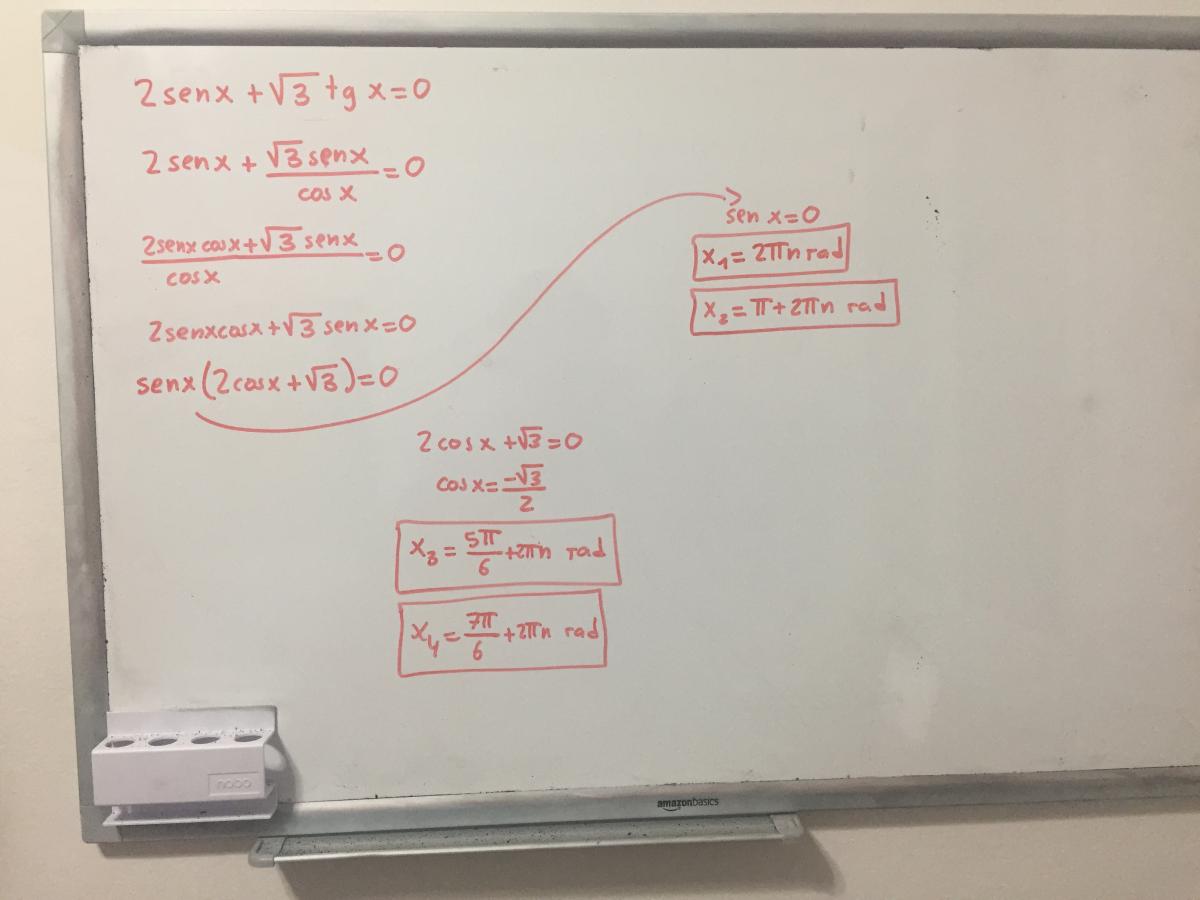 2senx + √3 tg x = 0
2senx + √3 senx / cos x = 0
2senx cosx + √3 senx / cosx = 0
2senxcosx + √3 senx = 0
senx(2cosx + √3) = 0
sen x = 0
x₁ = 2πn rad
x₂ = π + 2πn rad
2cosx + √3 = 0
cosx = -√3 / 2
x₃ = 5π / 6 + 2πn rad
x₄ = 7π / 6 + 2πn rad
nobo
amazonbasics